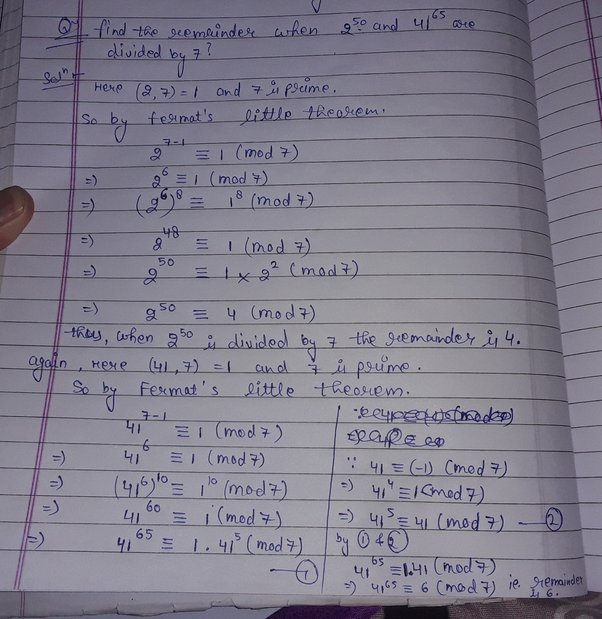 Q. find the remainder when 2^50 and 41^65 are
divided by 7?
Solⁿ → Here (2,7)=1 and 7 is prime.
So by fermat's little theorem.
2^(7-1) ≡ 1 (mod 7)
=) 2^6 ≡ 1 (mod 7)
=) (2^6)^8 ≡ 1^8 (mod 7)
=) 2^48 ≡ 1 (mod 7)
=) 2^50 ≡ 1 × 2^2 (mod 7)
=) 2^50 ≡ 4 (mod 7)
thus, when 2^50 is divided by 7 the remainder is 4.
again, Here (41,7) = 1 and 7 is prime.
So by Fermat's little theorem.
41^(7-1) ≡ 1 (mod 7)
=) 41^6 ≡ 1 (mod 7)
=) (41^6)^10 ≡ 1^10 (mod 7)
=) 41^60 ≡ 1 (mod 7)
=) 41^65 ≡ 1.41^5 (mod 7)
— ①
∵ 41 ≡ (-1) (mod 7)
=) 41^4 ≡ 1 (mod 7)
=) 41^5 ≡ 41 (mod 7) — ②
by ① & ②
41^65 ≡ 1.41 (mod 7)
=) 41^65 ≡ 6 (mod 7) ie. remainder
is 6.